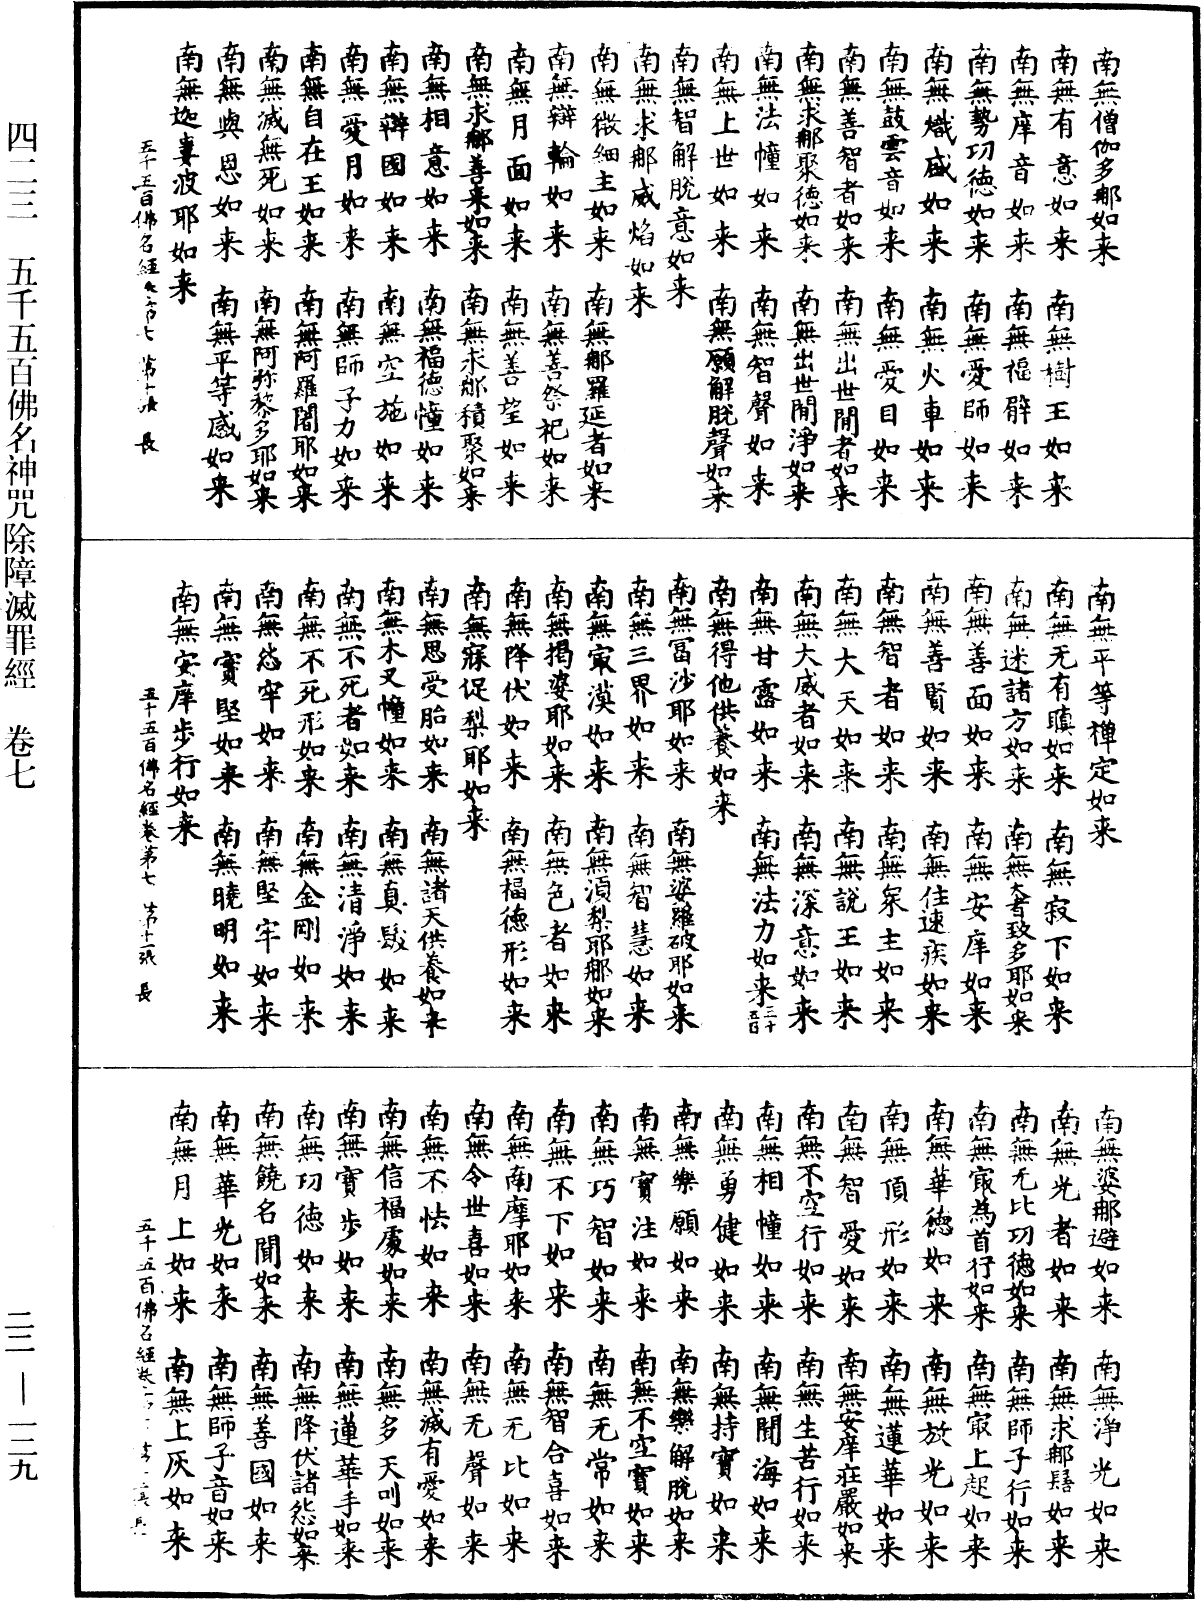 四二三　五千五百佛名神咒除障滅罪經　卷七
二三 — 一二九
南無僧伽多那如来
南無有意如来　南無樹王如来
南無摩音如来　南無福辟如来
南無勢功徳如来　南無愛師如来
南無熾盛如来　南無火車如来
南無鼓雲音如来　南無愛目如来
南無善智者如来　南無出世間者如来
南無求那聚徳如来　南無出世間淨如来
南無法幢如来　南無智聲如来
南無上世如来　南無願解脱聲如来
南無智解脱意如来
南無求那威焰如来
南無微細主如来　南無那羅延者如来
南無辯輪如来　南無善祭祀如来
南無月面如来　南無善望如来
南無求那善来如来　南無求那積聚如来
南無相意如来　南無福徳幢如来
南無辯國如来　南無空施如来
南無愛月如来　南無師子力如来
南無自在王如来　南無阿羅闍耶如来
南無滅無死如来　南無阿弥黎多耶如来
南無與恩如来　南無平等感如来
南無迦婁波耶如来
五千五百佛名經卷第七　第十張　長
南無平等禅定如来
南無无有瞋如来　南無寂下如来
南無迷諸方如来　南無大者致多耶如来
南無善面如来　南無安庠如来
南無善賢如来　南無住速疾如来
南無智者如来　南無衆主如来
南無大天如来　南無說王如来
南無大威者如来　南無深意如来
南無甘露如来　南無法力如来三千五百
南無得他供養如来
南無冨沙耶如来　南無婆羅破耶如来
南無三界如来　南無智慧如来
南無㝡漠如来　南無湏梨耶那如来
南無揭婆耶如来　南無色者如来
南無降伏如来　南無福徳形如来
南無寐促梨耶如来
南無思受胎如来　南無諸天供養如来
南無木叉幢如来　南無真髮如来
南無不死者如来　南無清淨如来
南無不死形如来　南無金剛如来
南無怹牢如来　南無堅牢如来
南無寳堅如来　南無曉明如来
南無安庠步行如来
五千五百佛名經卷第七　第十一張　長
南無婆那避如来　南無淨光如来
南無光者如来　南無求那髻如来
南無无比功德如来　南無師子行如来
南無㝡為首行如来　南無㝡上起如来
南無華德如来　南無放光如来
南無頂形如来　南無蓮華如来
南無智愛如来　南無安庠莊嚴如来
南無不空行如来　南無生苦行如来
南無相幢如来　南無聞海如来
南無勇健如来　南無持寳如来
南無樂願如来　南無樂解脱如来
南無寳注如来　南無不空寳如来
南無巧智如来　南無无常如来
南無不下如来　南無智合喜如来
南無南摩耶如来　南無无比如来
南無令世喜如来　南無无聲如来
南無不怯如来　南無滅有愛如来
南無信福處如来　南無多天叫如来
南無寳步如来　南無蓮華手如来
南無功德如来　南無降伏諸怨如来
南無饒名聞如来　南無善國如来
南無華光如来　南無師子音如来
南無月上如来　南無上灰如来
五千五百佛名經